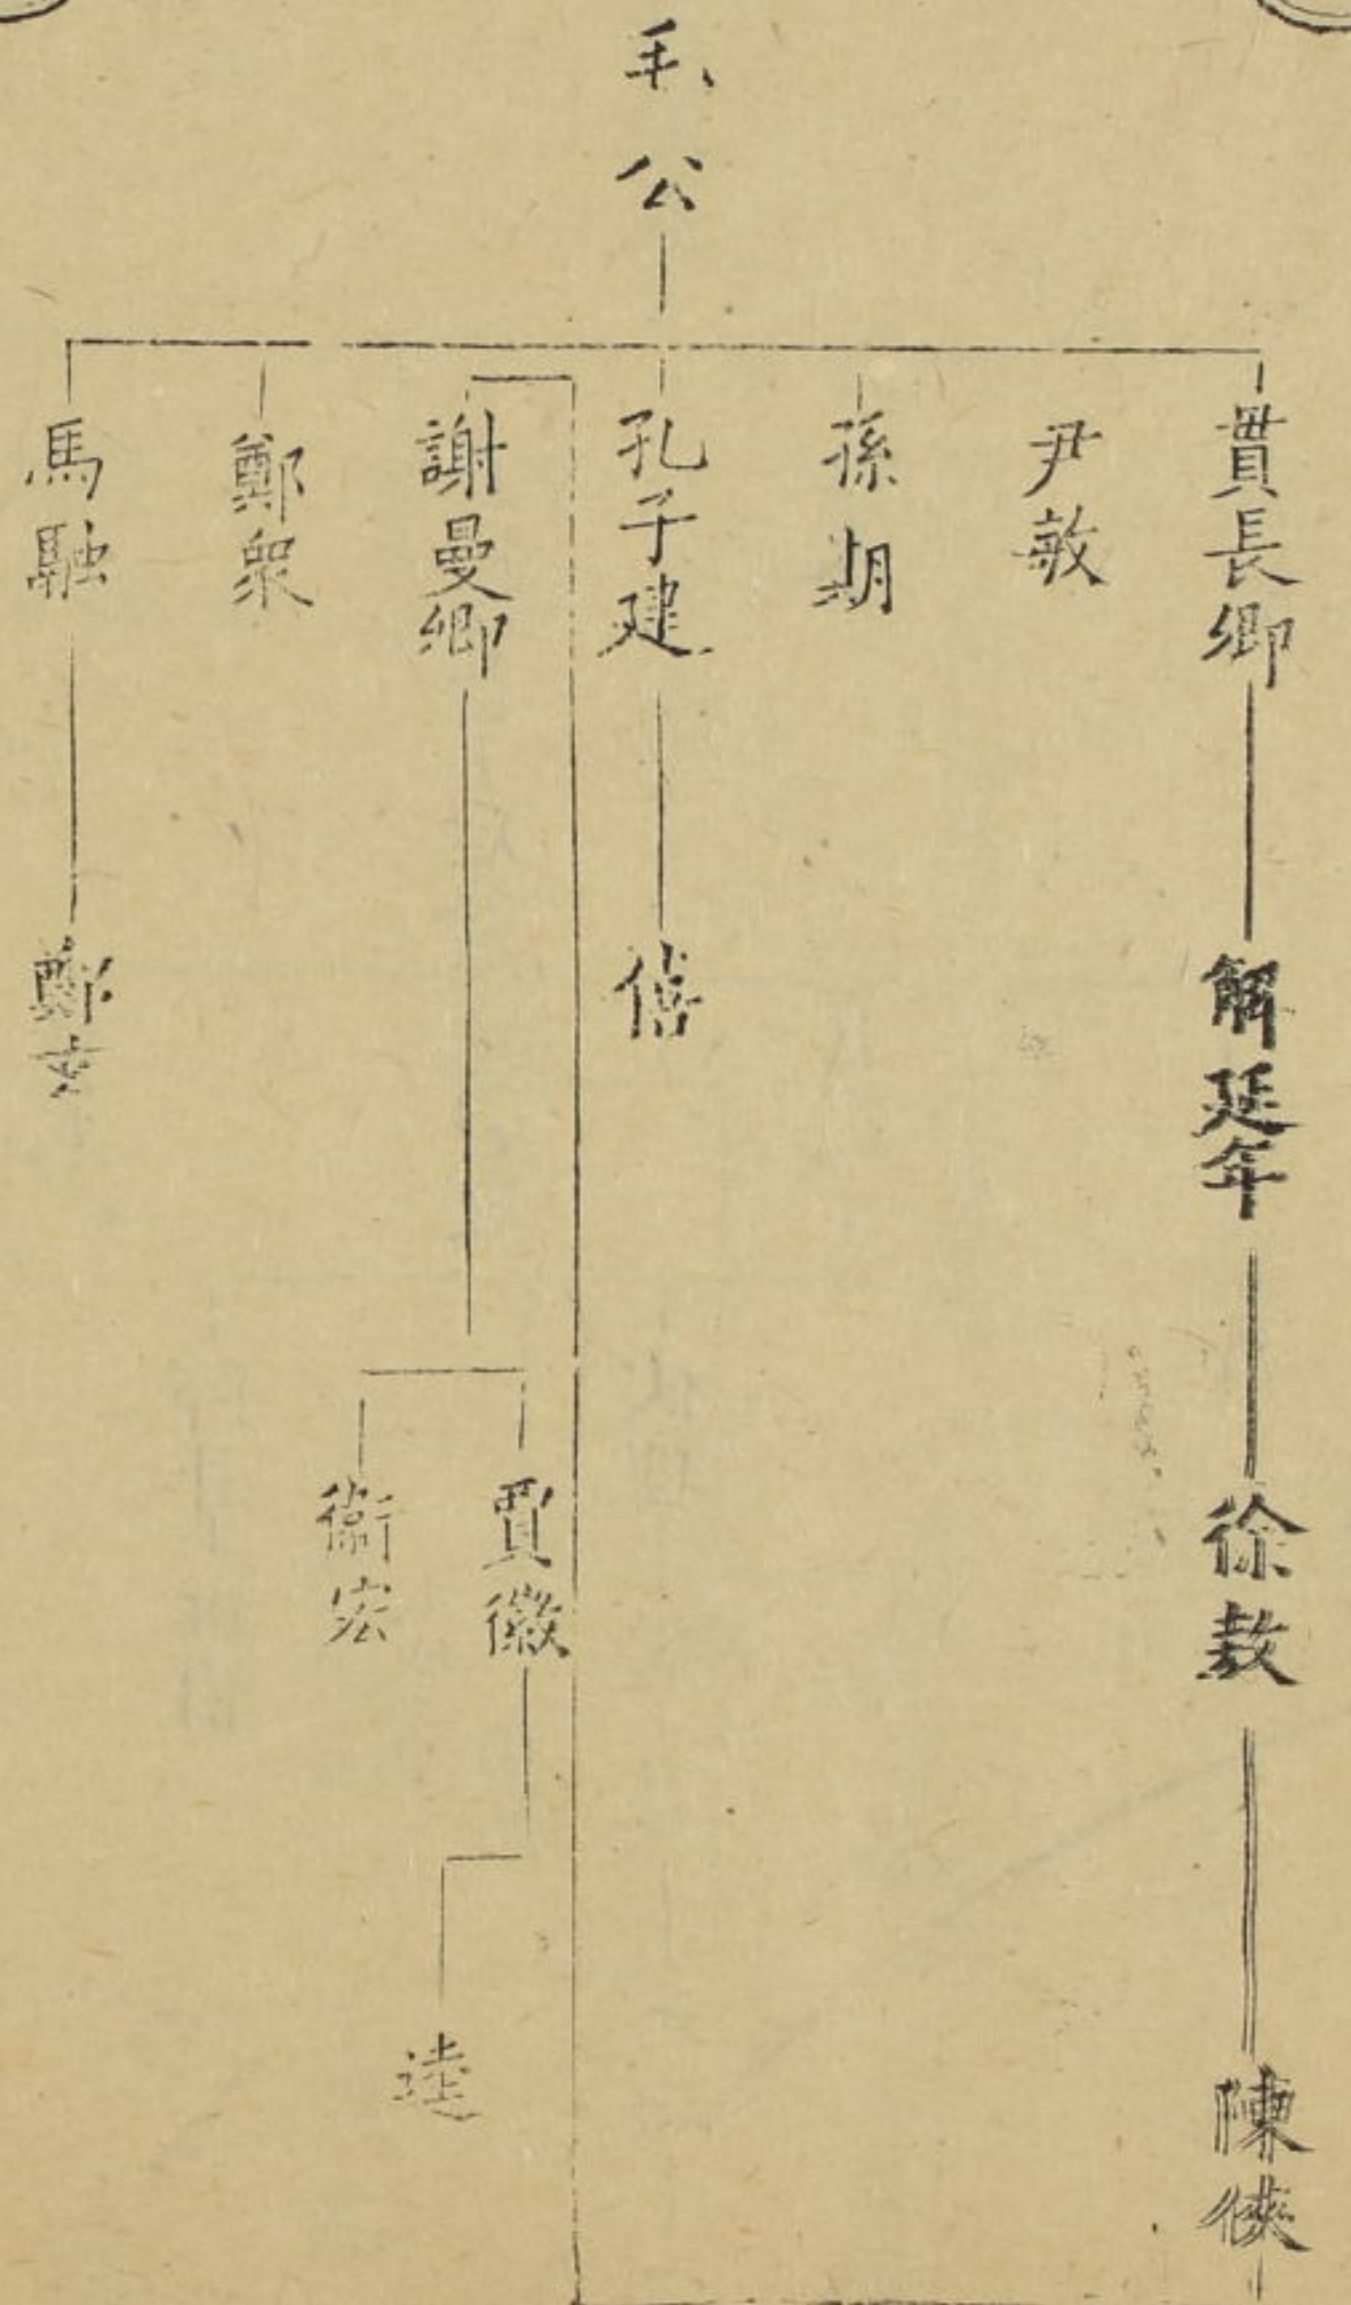 毛公
貫長卿
解延年
徐敖
陳俠
尹敏
孫期
孔子建
僖
謝曼卿
賈徽
逵
衞宏
鄭眾
馬融
鄭玄